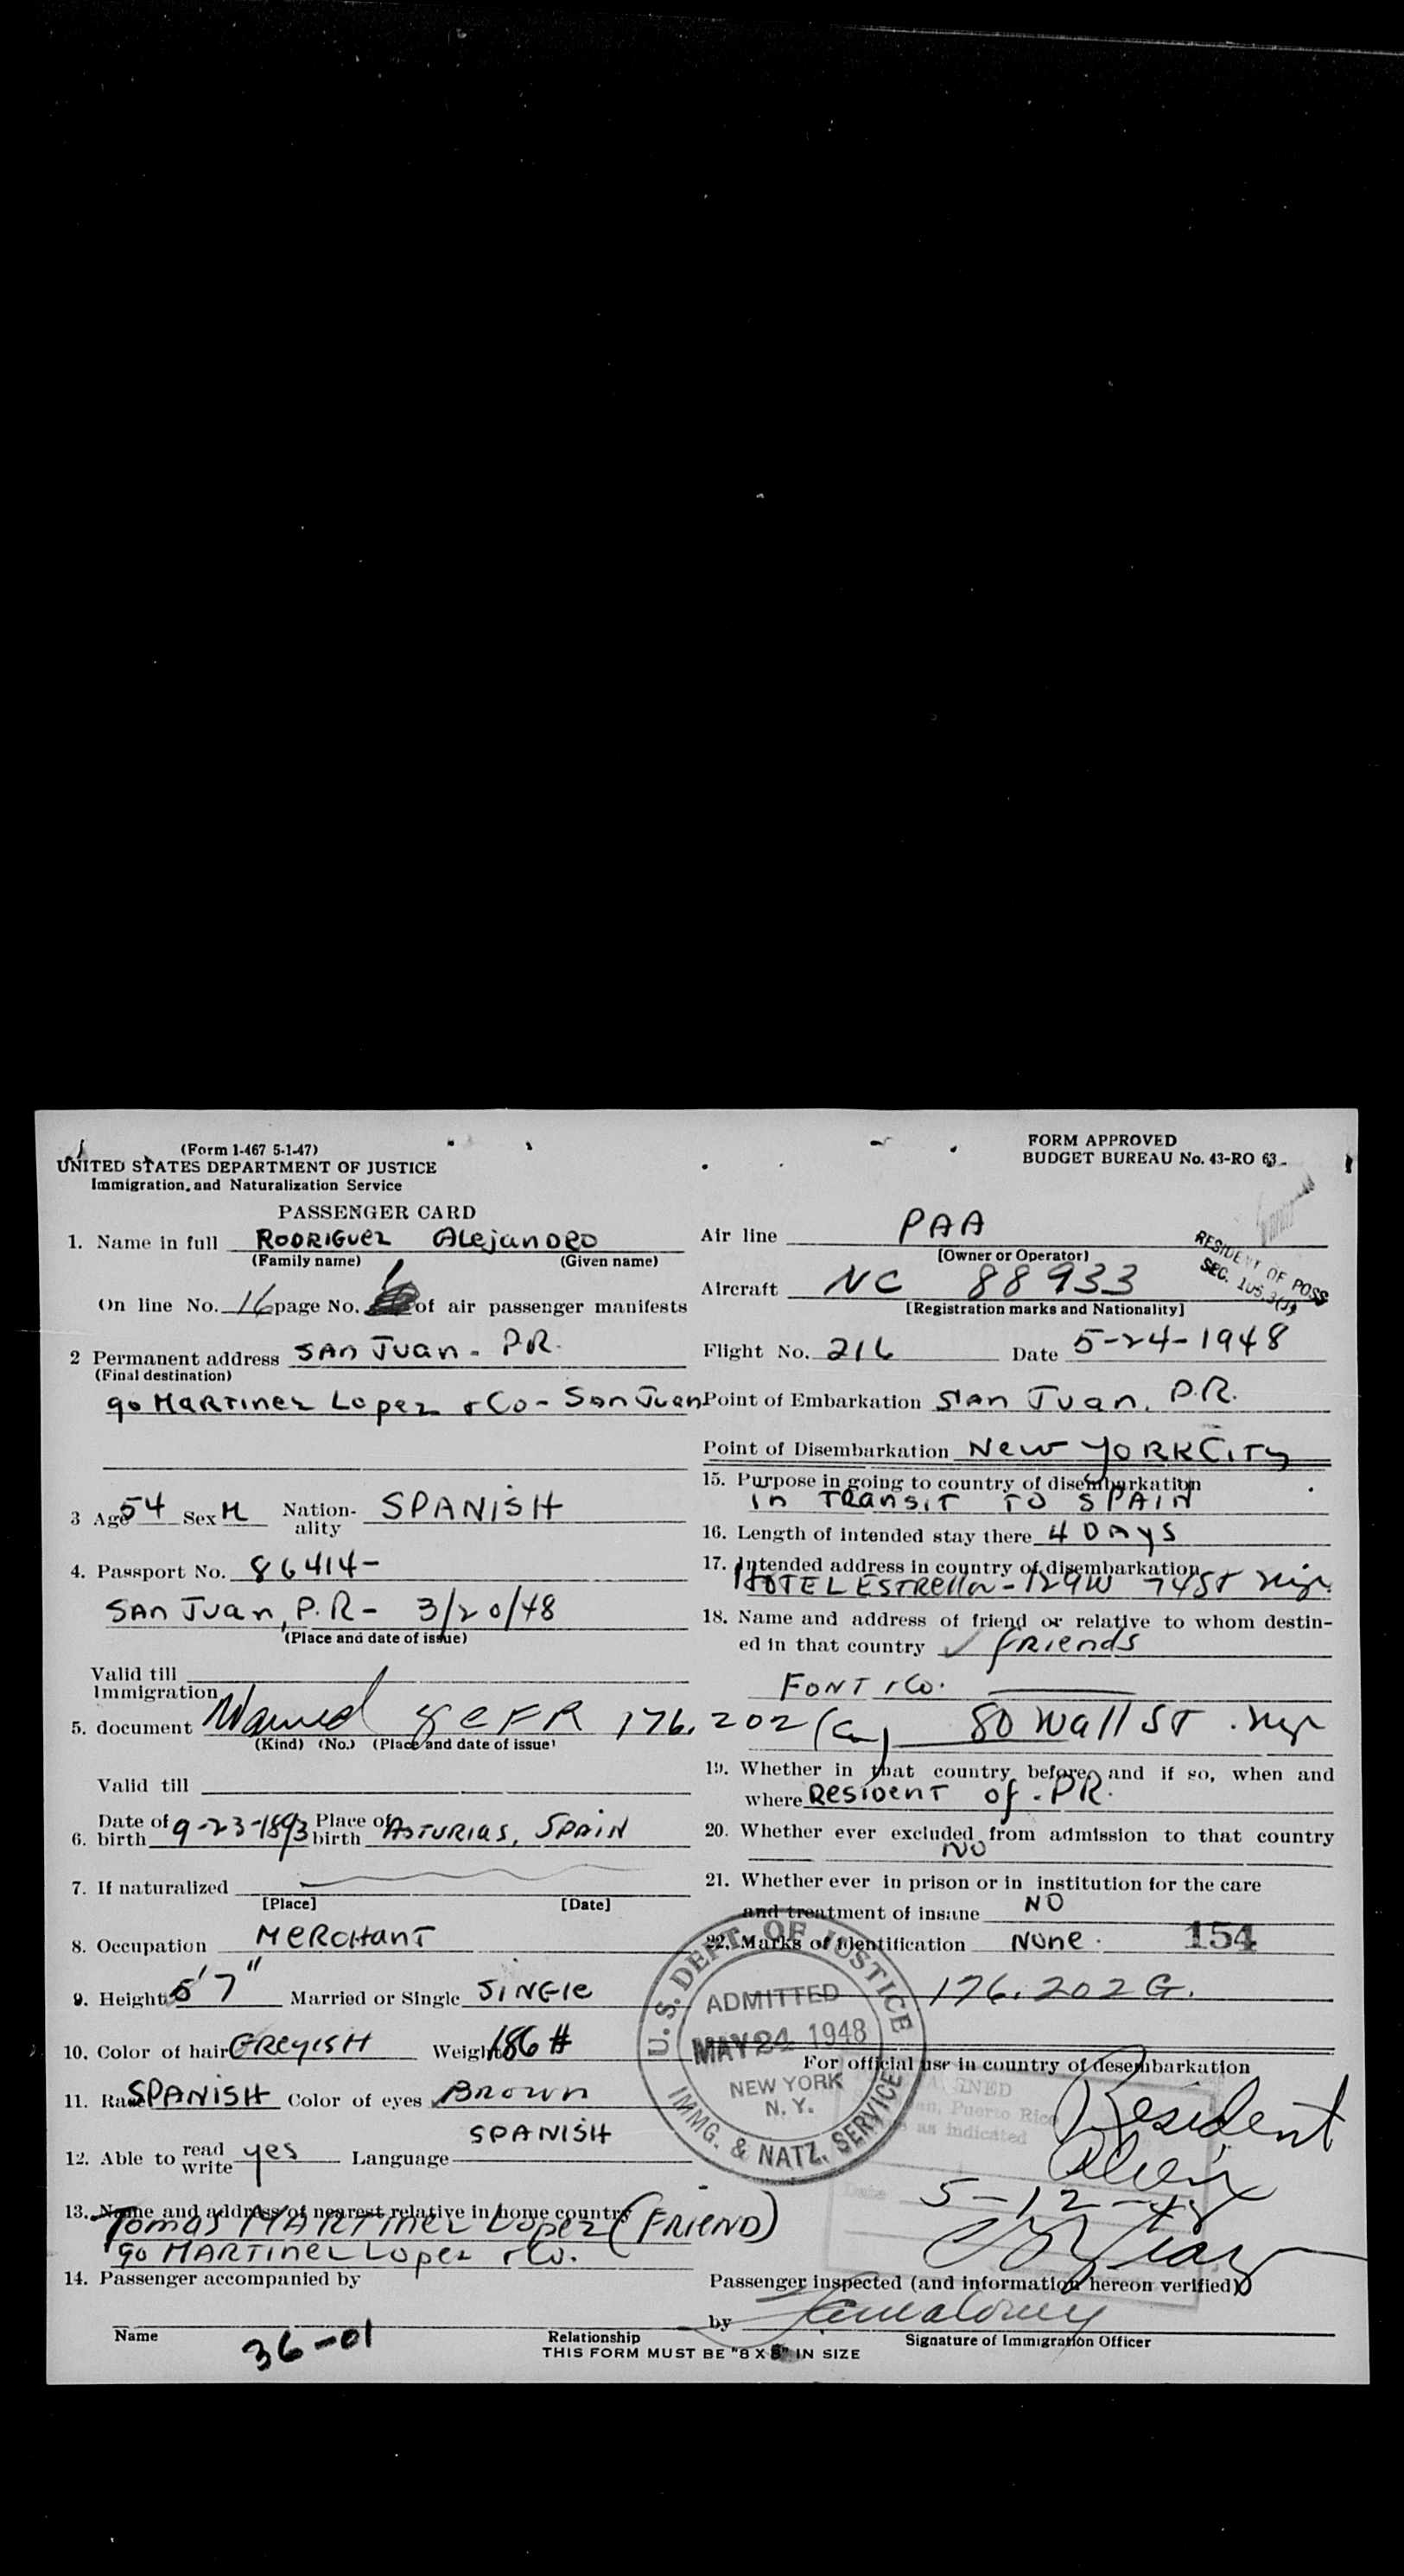 (Form 1-467 5-1-47)
UNITED STATES DEPARTMENT OF JUSTICE
Immigration and Naturalization Service
PASSENGER CARD
1. Name in full RODRIGUEZ Alejandro
(Family name) (Given name)
On line No. 16 page No. 6 of air passenger manifests
2 Permanent address San Juan - P.R.
(Final destination)
c/o Martinez Lopez & Co - San Juan
3 Age 54 Sex M Nation-ality SPANISH
4. Passport No. 86414-
San Juan, P.R - 3/20/48
(Place and date of issue)
Valid till
Immigration
5. document Waived 176.202 (a)
(Kind) (No.) (Place and date of issue)
Valid till
6. Date of birth 9-23-1893 Place of birth Asturias, Spain
7. If naturalized
[Place] [Date]
8. Occupation Merchant
9. Height 5'7" Married or Single Single
10. Color of hair Greyish Weight 186 #
11. Race SPANISH Color of eyes Brown
12. Able to read write yes Language SPANISH
13. Name and address of nearest relative in home country
Tomas Martinez Lopez (FRIEND)
c/o Martinez Lopez & Co.
14. Passenger accompanied by
Name Relationship
36-01
THIS FORM MUST BE "8 X 5" IN SIZE
FORM APPROVED
BUDGET BUREAU No. 43-RO 63
Air line PAA
(Owner or Operator)
RESIDENT OF POSS
SEC. 105.3(J)
Aircraft NC 88933
[Registration marks and Nationality]
Flight No. 216 Date 5-24-1948
Point of Embarkation San Juan, P.R.
Point of Disembarkation New York City
15. Purpose in going to country of disembarkation
in Transit to SPAIN
16. Length of intended stay there 4 Days
17. Intended address in country of disembarkation
HOTEL Estrella - 129W 74 St
18. Name and address of friend or relative to whom destin-
ed in that country friends
Font & Co.
80 Wall St.
19. Whether in that country before, and if so, when and
where Resident of P.R.
20. Whether ever excluded from admission to that country
NO
21. Whether ever in prison or in institution for the care
and treatment of insane NO
22. Marks of Identification None. 154
176.202 G.
U.S. DEPT. OF JUSTICE
ADMITTED
MAY 24 1948
NEW YORK
N. Y.
IMMG. & NATZ. SERVICE
For official use in country of desembarkation
Puerto Rico
as indicated
Resident
Alien
Date 5-12-48
Passenger inspected (and information hereon verified)
by
Signature of Immigration Officer